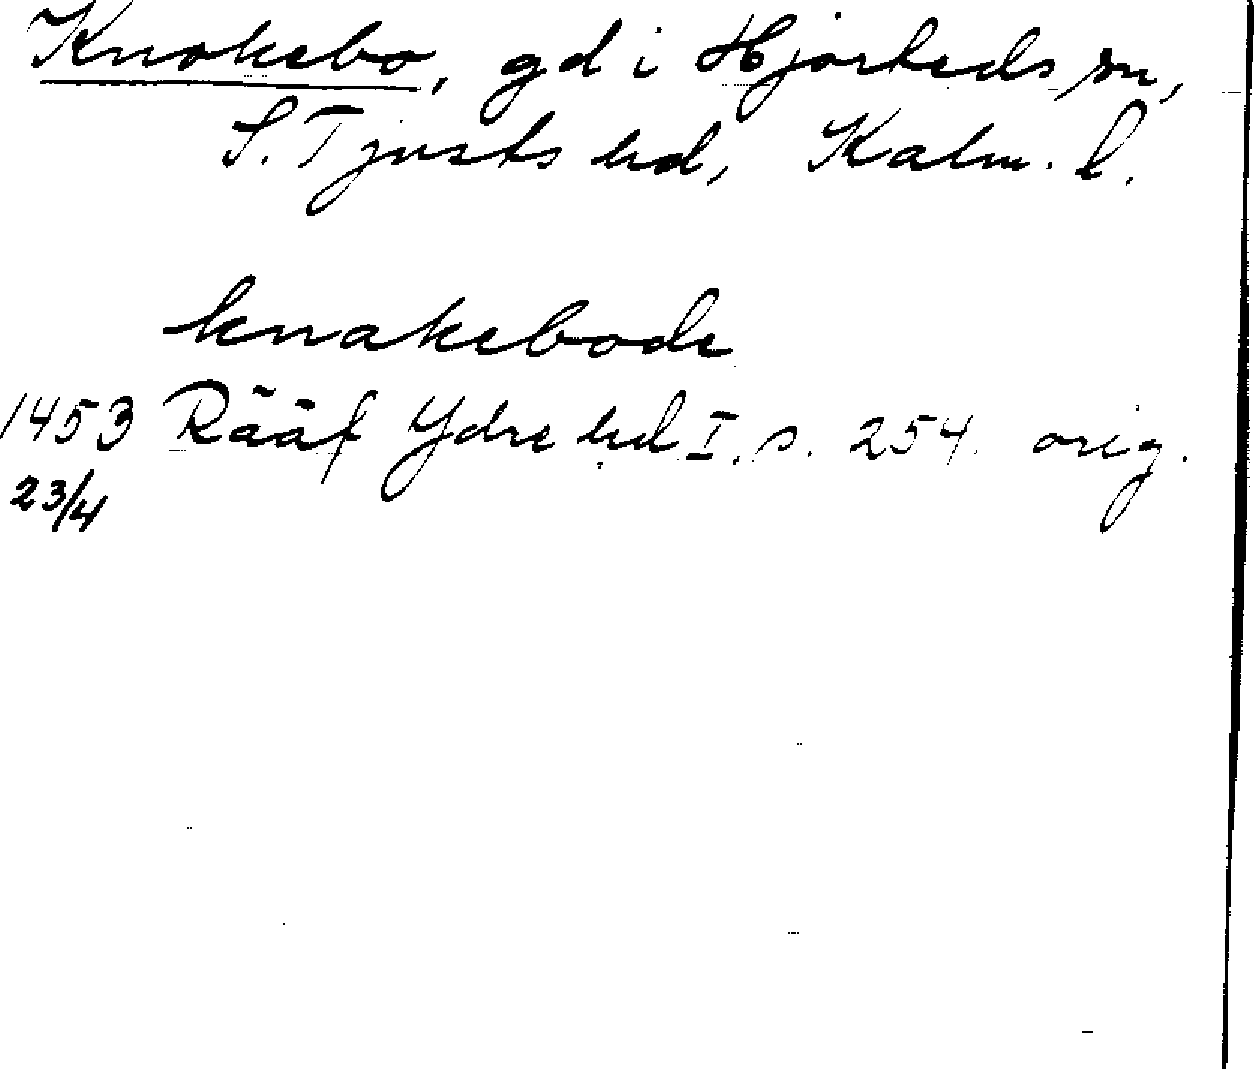 Knakebo, gd i Hjorteds sn,
S. Tjusts hd, Kalm. l.
knakebode
1453 Rääf Ydre hd I. s. 254. orig.
23/4